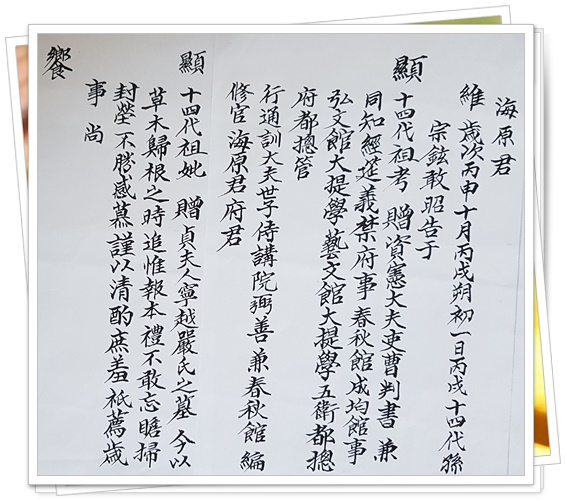 海原君
維 歲次丙申十月丙戌朔初一日丙戌十四代孫
宗鉉敢昭告于
顯 十四代祖考 贈資憲大夫吏曹判書 兼
同知經筵義禁府事 春秋館成均館事
弘文館大提學藝文館大提學五衛都摠
府都摠管
行通訓大夫世子侍講院弼善 兼春秋館編
修官海原君府君
顯 十四代祖妣 贈貞夫人寧越嚴氏之墓 今以
草木歸根之時追惟報本禮不敢忘瞻掃
封塋不勝感慕謹以清酌庶羞祗薦歲
事 尚
饗